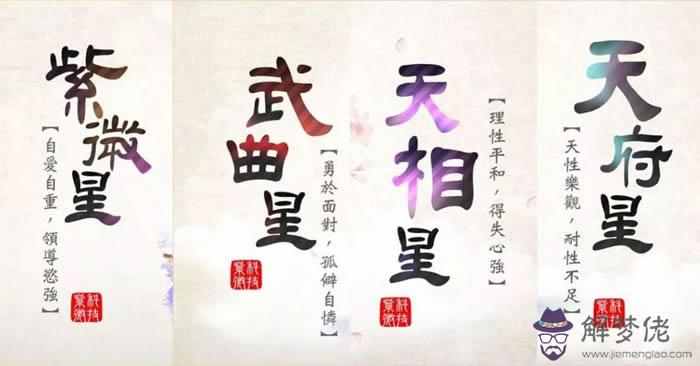 紫微星
【自愛自重，領導慾強】
科技紫微
武曲星
【勇於面對，孤僻自憐】
科技紫微
天相星
【理性平和，得失心強】
科技紫微
天府星
【天性樂觀，耐性不足】
科技紫微
解梦佬
www.jiemenglao.com